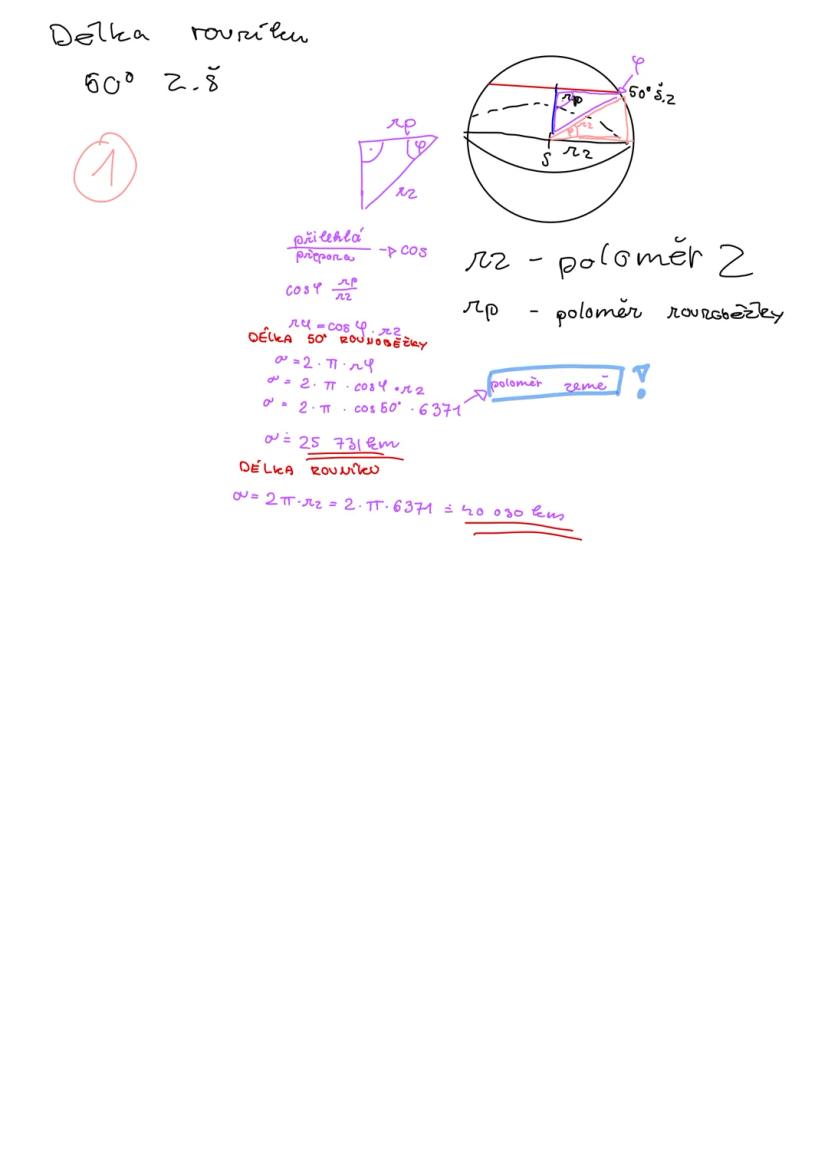 Délka rovníku
50° z.š
φ
50° š.z
rp
rz
S rz
1
rp
φ
rz
přilehlá
přepona → cos
cos φ rp
rz
rφ = cos φ · rz
DÉLKA 50° ROVNOBĚŽKY
σ = 2 · π · rφ
σ = 2 · π · cos φ · rz
σ = 2 · π · cos 50° · 6371
σ ≐ 25 731 km
DÉLKA ROVNÍKU
σ = 2π · rz = 2 · π · 6371 ≐ 40 030 km
rz - poloměr Z
rp - poloměr rovnoběžky
poloměr země !